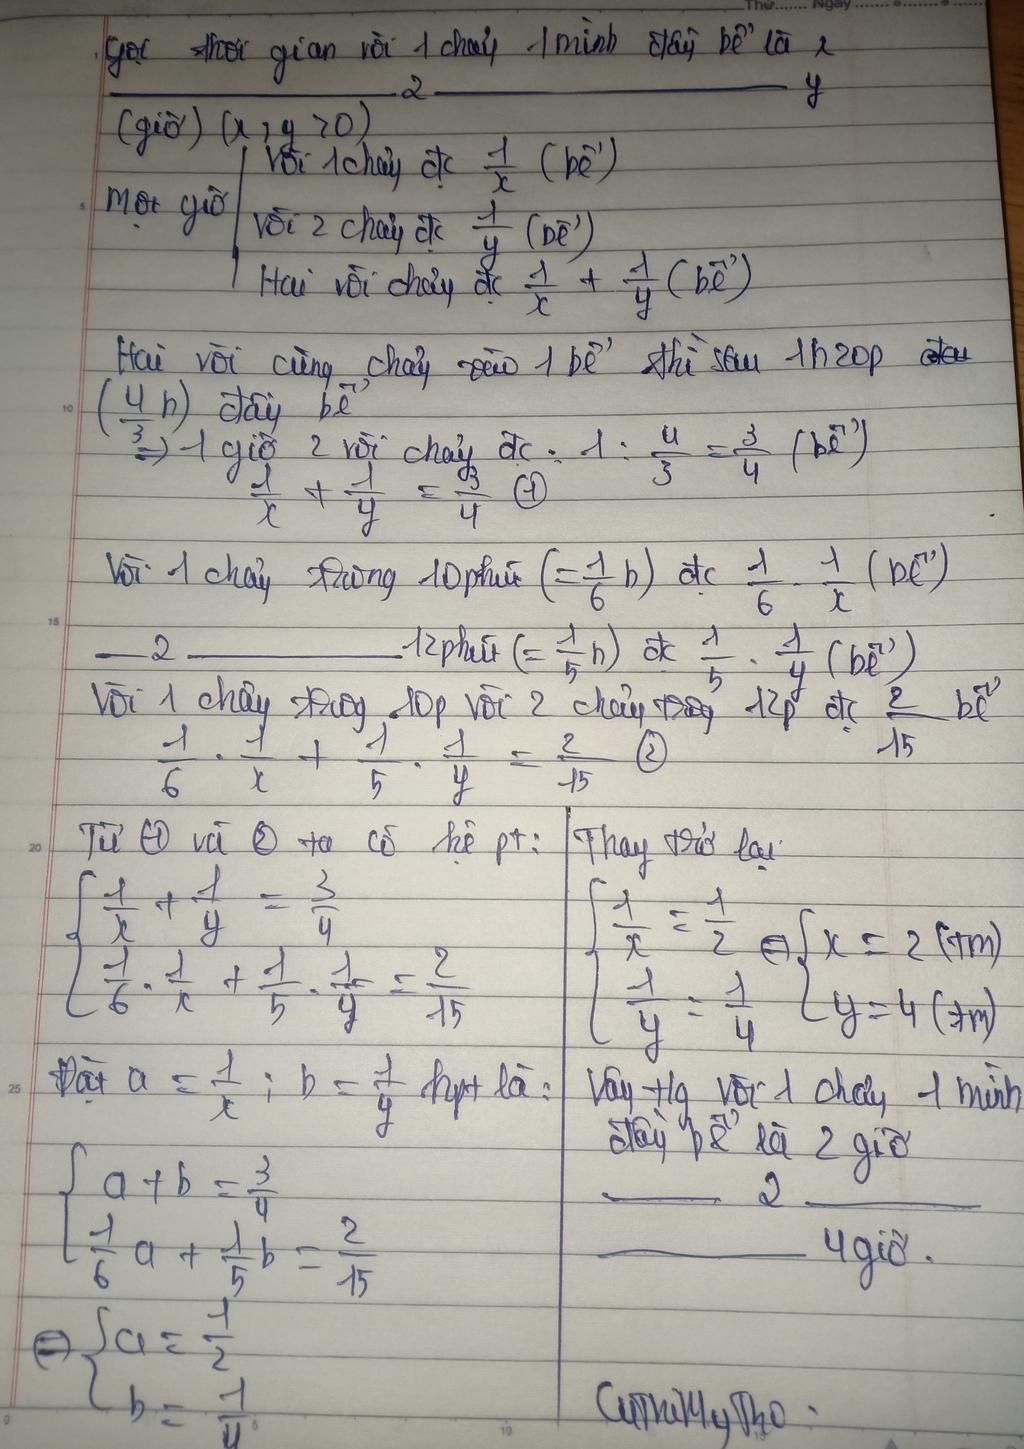 Thứ....... Ngày
Gọi thời gian vòi 1 chảy 1 mình đầy bể là x
——— 2 ——— y
(giờ) (x, y > 0)
Một giờ | Vòi 1 chảy đc 1/x (bể)
Vòi 2 chảy đc 1/y (bể)
Hai vòi chảy đc 1/x + 1/y (bể)
Hai vòi cùng chảy vào 1 bể thì sau 1h20p
(4/3 h) đầy bể
=> 1 giờ 2 vòi chảy đc : 1 : 4/3 = 3/4 (bể)
1/x + 1/y = 3/4 ①
Vòi 1 chảy trong 10phút (= 1/6 h) đc 1/6 . 1/x (bể)
— 2 ——— 12phút (= 1/5 h) đc 1/5 . 1/y (bể)
Vòi 1 chảy trog 10p vòi 2 chảy trog 12p đc 2/15 bể
1/6 . 1/x + 1/5 . 1/y = 2/15 ②
Từ ① và ② ta có hệ pt:
{ 1/x + 1/y = 3/4
1/6 . 1/x + 1/5 . 1/y = 2/15
Đặt a = 1/x ; b = 1/y hpt là:
{ a + b = 3/4
1/6 a + 1/5 b = 2/15
⇔ { a = 1/2
b = 1/4
Thay trở lại
{ 1/x = 1/2 ⇔ { x = 2 (tm)
1/y = 1/4 y = 4 (tm)
Vậy tg vòi 1 chảy 1 mình
đầy bể là 2 giờ
——— 2 ———
——— 4 giờ.
CuThiMyTho.